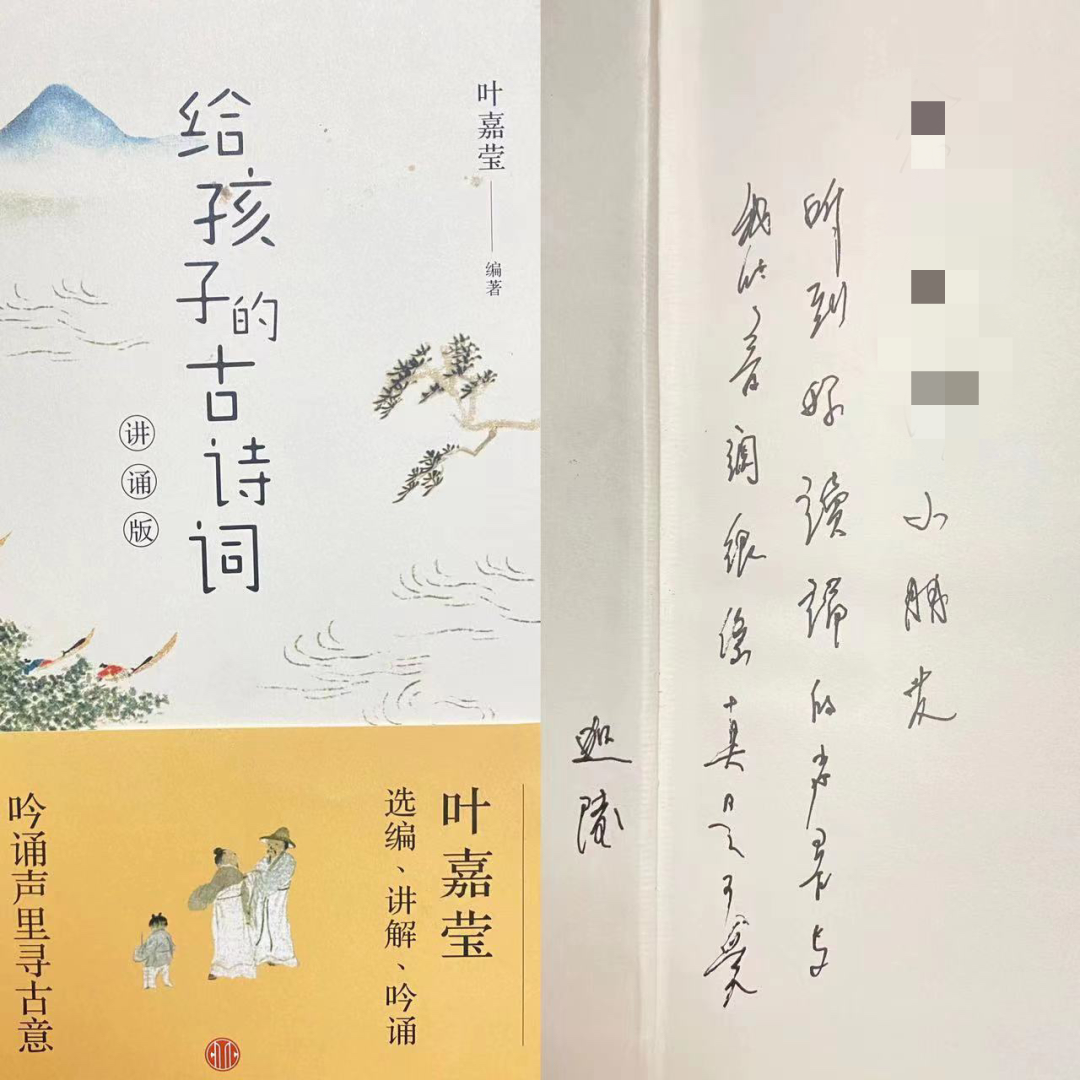 叶嘉莹 编著
给孩子的古诗词
讲诵版
叶嘉莹
选编、讲解、吟诵
吟诵声里寻古意
小朋友
听到妳讀誦的声音与
我的音調很像真是可愛
迦陵